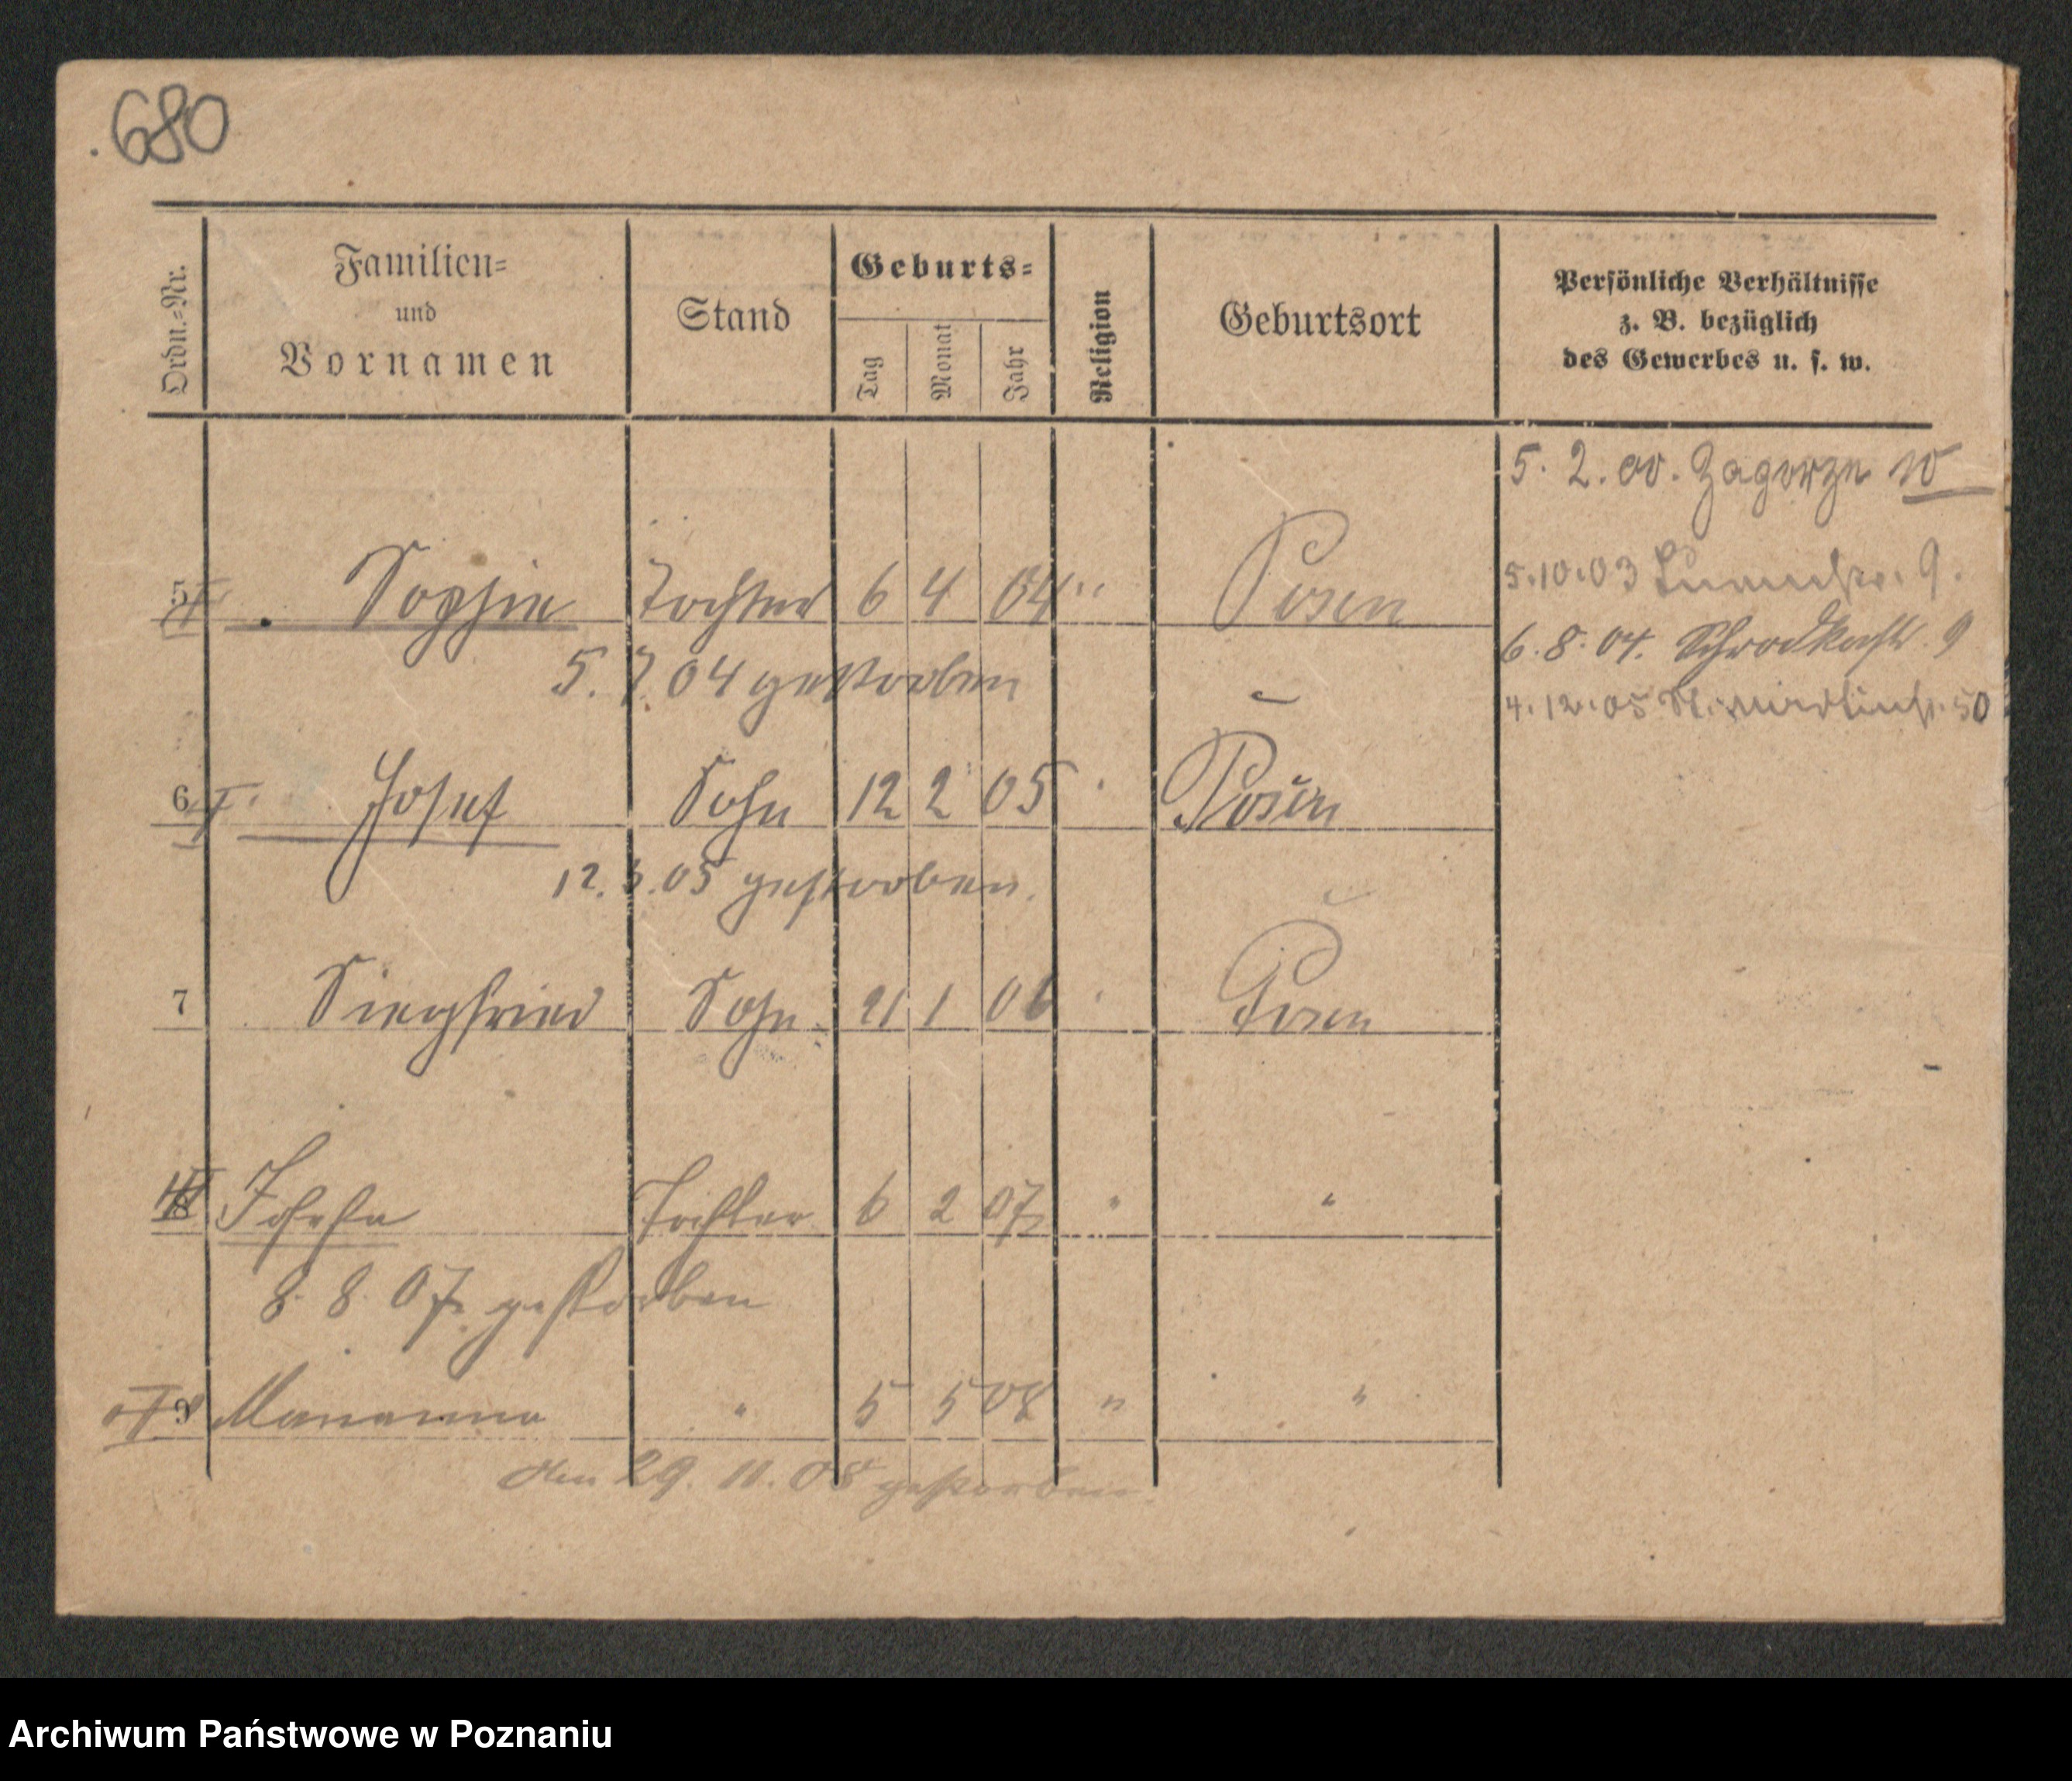 680
Ordn.-Nr. Familien- und Vornamen Stand Geburts- Tag Monat Jahr Religion Geburtsort Persönliche Verhältnisse z. B. bezüglich des Gewerbes u. s. w.
5. 2. 00. Zagorze 10
5.10.03 9.
5 Sophie Tochter 6 4 04 " Posen
6. 8. 04. Schrodkastr. 9
5. 7. 04 gestorben
4. 12. 05 St. Martinstr. 50
6 Josef Sohn 12 2 05 Posen
12. 3. 05 gestorben.
7 Siegfried Sohn 21 1 06 Posen
8 Tochter 6 2 07 " "
8. 8. 07 gestorben
9 Marianna " 5 5 08 " "
den 29. 11. 08 gestorben.
Archiwum Państwowe w Poznaniu